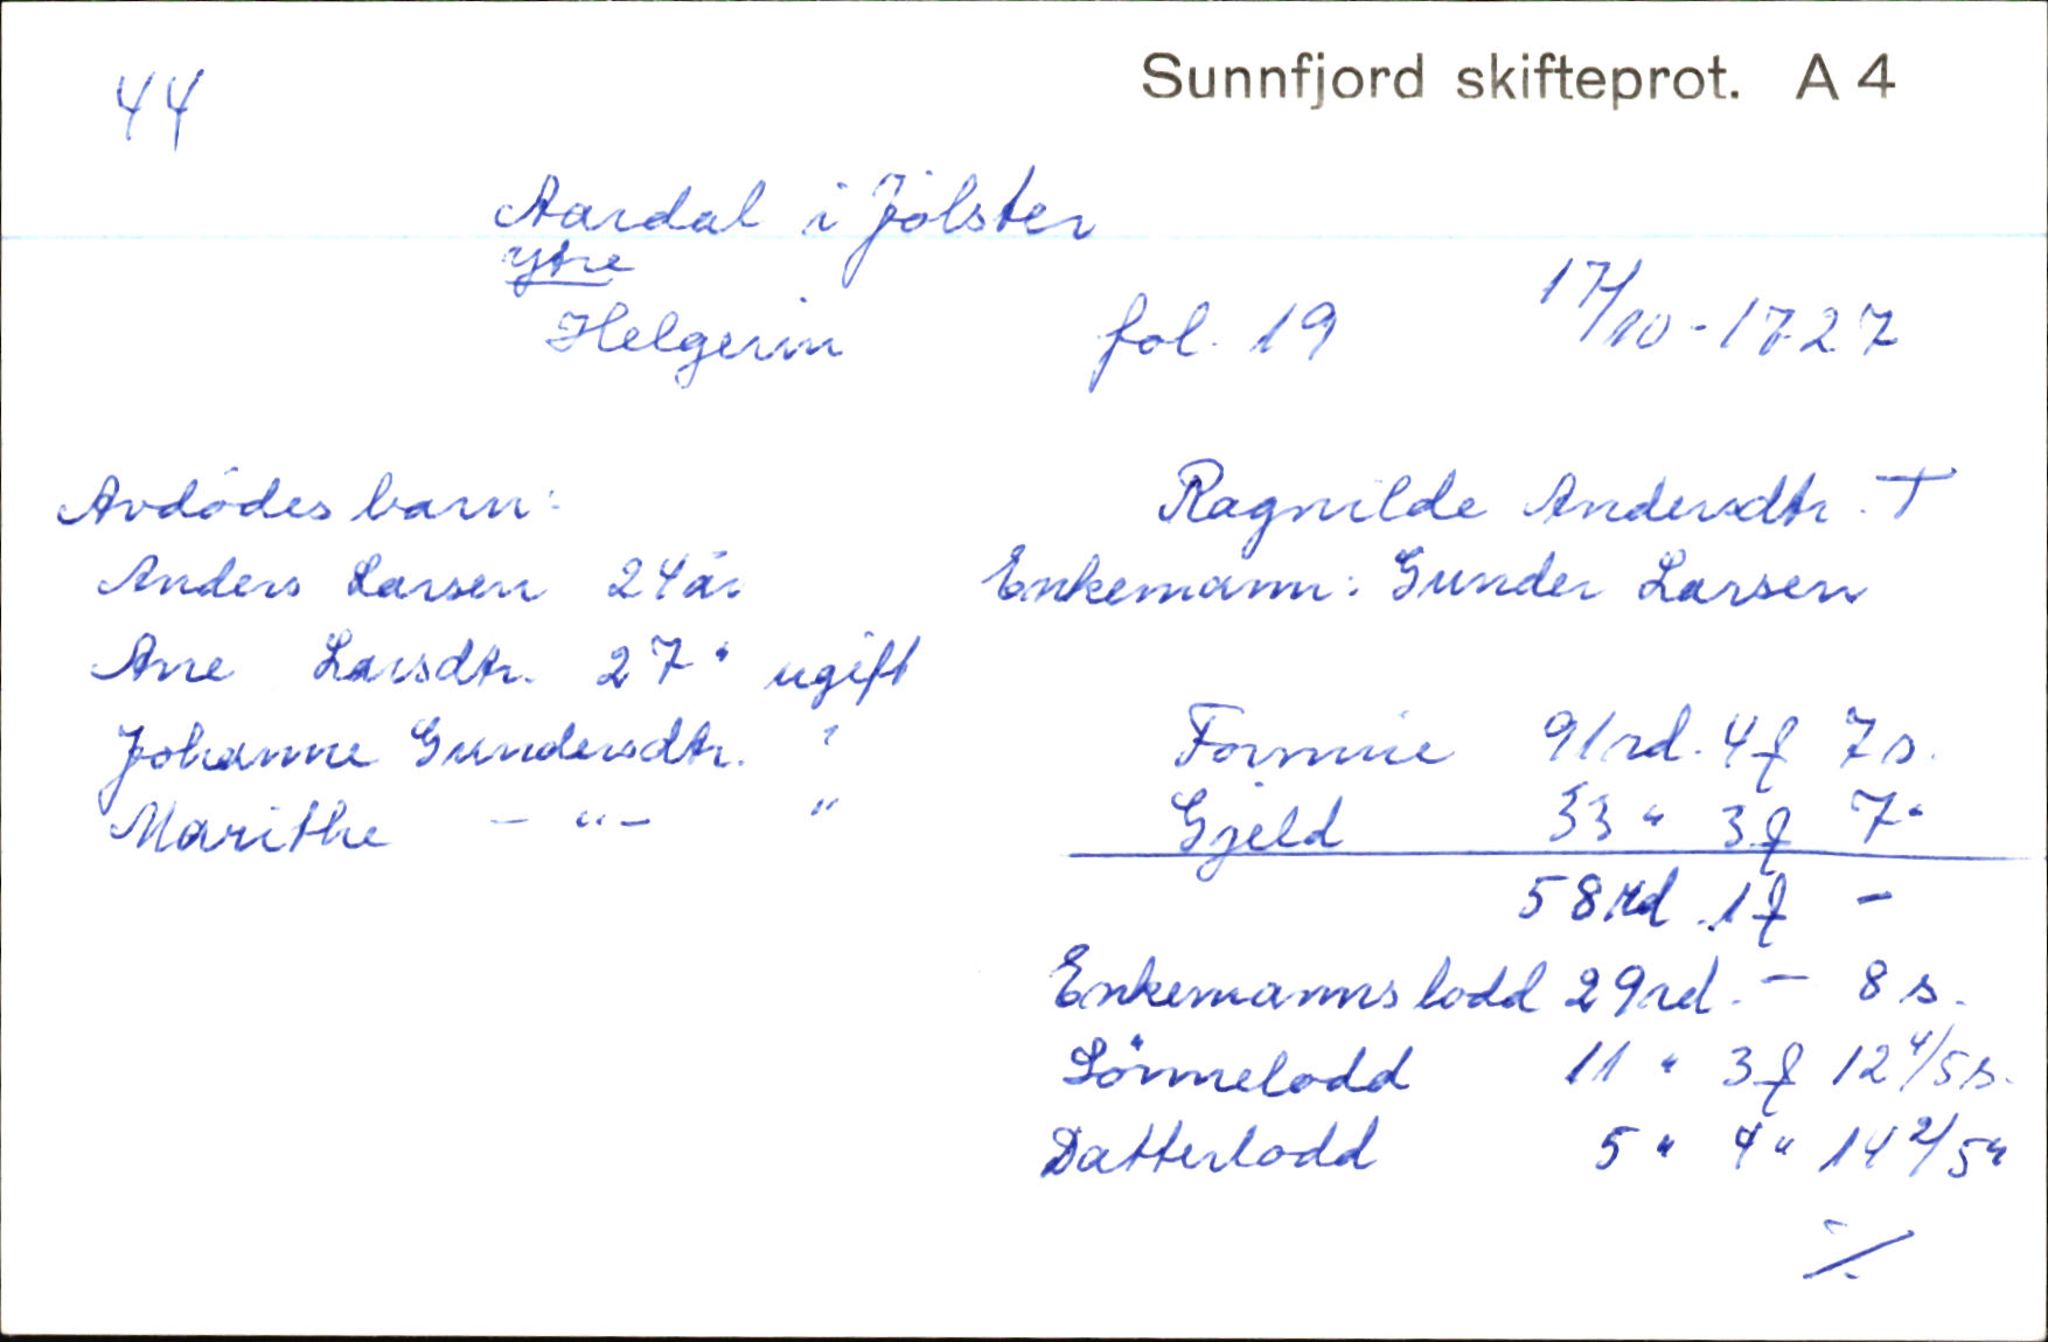 44
Sunnfjord skifteprot. A 4
Aardal i Jölster
Ytre
Helgerin fol. 19 17/10-1727
Avdödes barn:
Anders Larsen 24 år
Ane Larsdtr. 27 " ugift
Johanne Gundersdtr. "
Marithe - " - "
Ragnilde Andersdtr. +
Enkemann: Gunder Larsen
Formue 91 rd. 4 f 7 s.
Gjeld 33 " 3 f 7 "
58 rd. 1 f -
Enkemanns lodd 29 rd. - 8 s.
Sönnelodd 11 " 3 f 12 4/5 s.
Datterlodd 5 " 4 " 14 2/5 "
./.